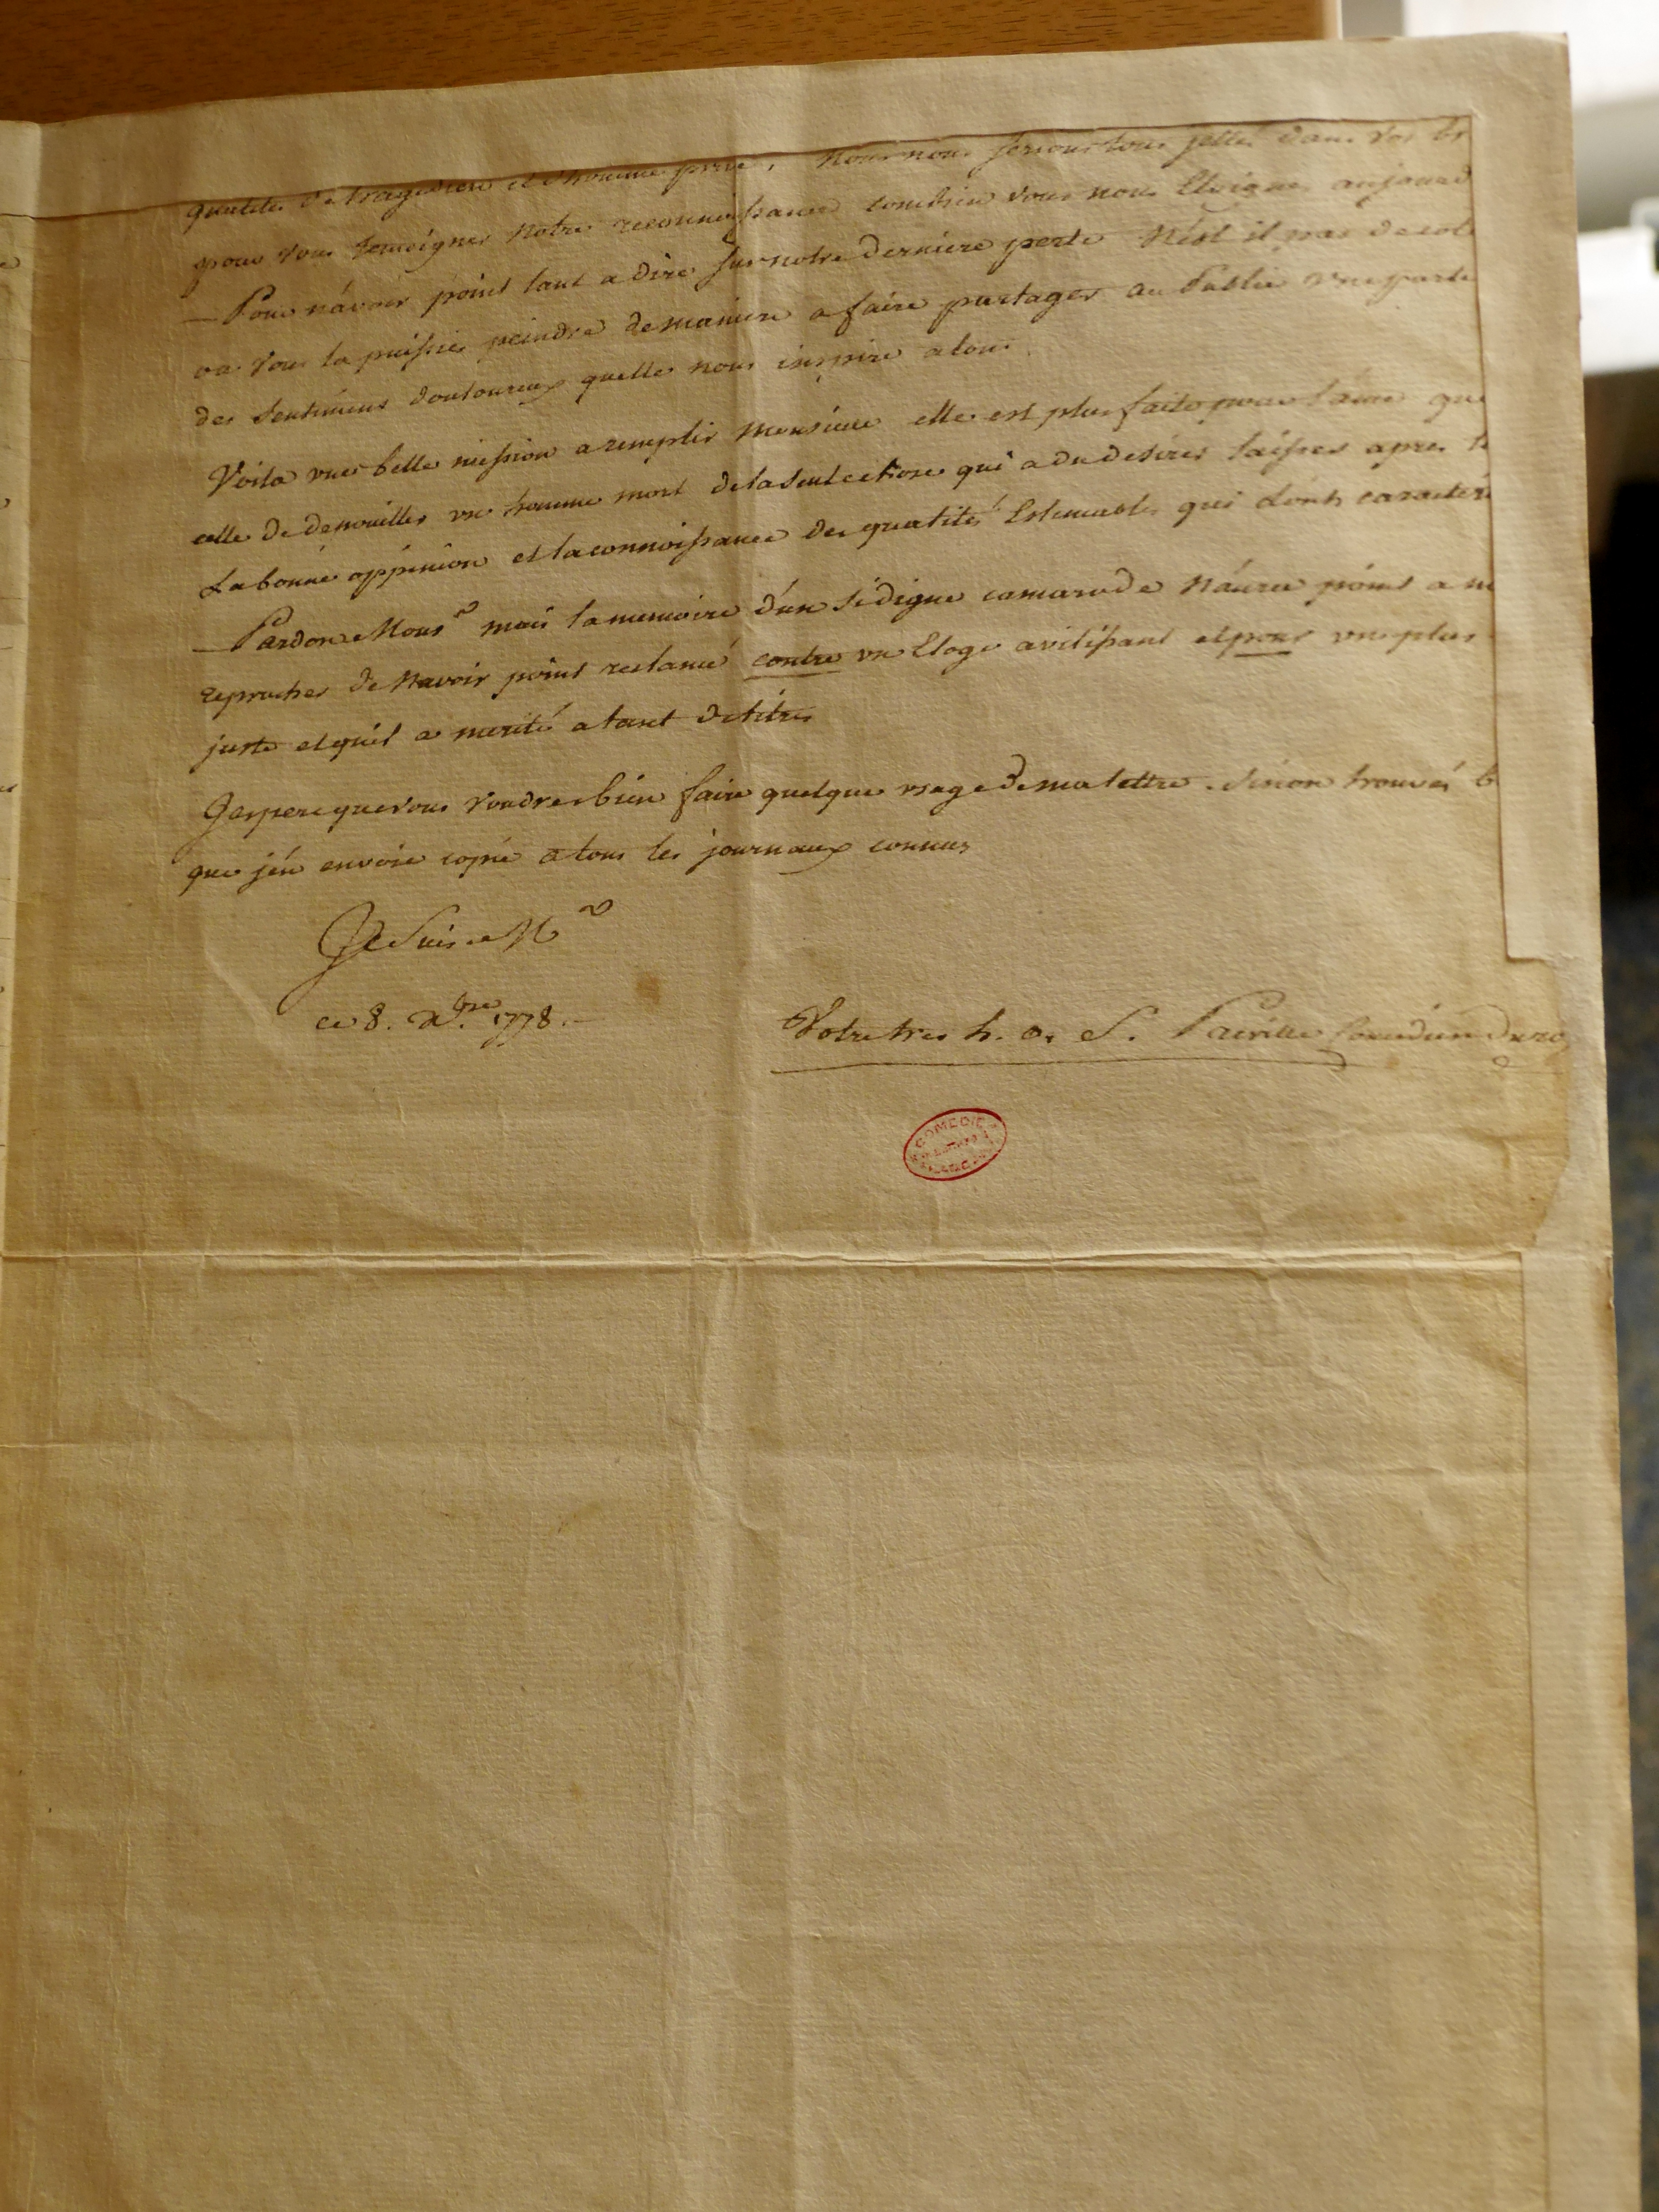 qualités de tragedien et d'homme privé, Nous nous serions tous jettés dans vos br
pour vous temoigner notre reconnoissance combien vous nous Eloignes aujourd
— Pour n'avoir point tant a dire sur notre derniere perte N'est il pas de
vous la puissies peindre de maniere a faire partager au Public une partie
des sentimens douloureux quelle nous inspire a tous.
Voila une belle mission a remplir Monsieur elle est plus faite pour l'ame que
celle de depouiller un homme mort de la seule chose qui a du desirer laisser apres l
La bonne oppinion et la connoissance des qualités Estimables qui l'ont caracteri
— Pardon Monsr mais la memoire d'un si digne camarade N'aura point a m
reprocher de N'avoir point reclamé contre un Eloge avilissant et pour un plus
juste et qu'il a merité a tant de titres
J'espere que vous voudres bien faire quelque usage de ma lettre. Sinon trouvés b
que j'en envoie copie a tous les journaux connus
Je Suis Mr
ce 8. Xbre 1778.—
Votre tres h. o. S. Preville Comedien du ro
COMEDIE
FRANCAISE